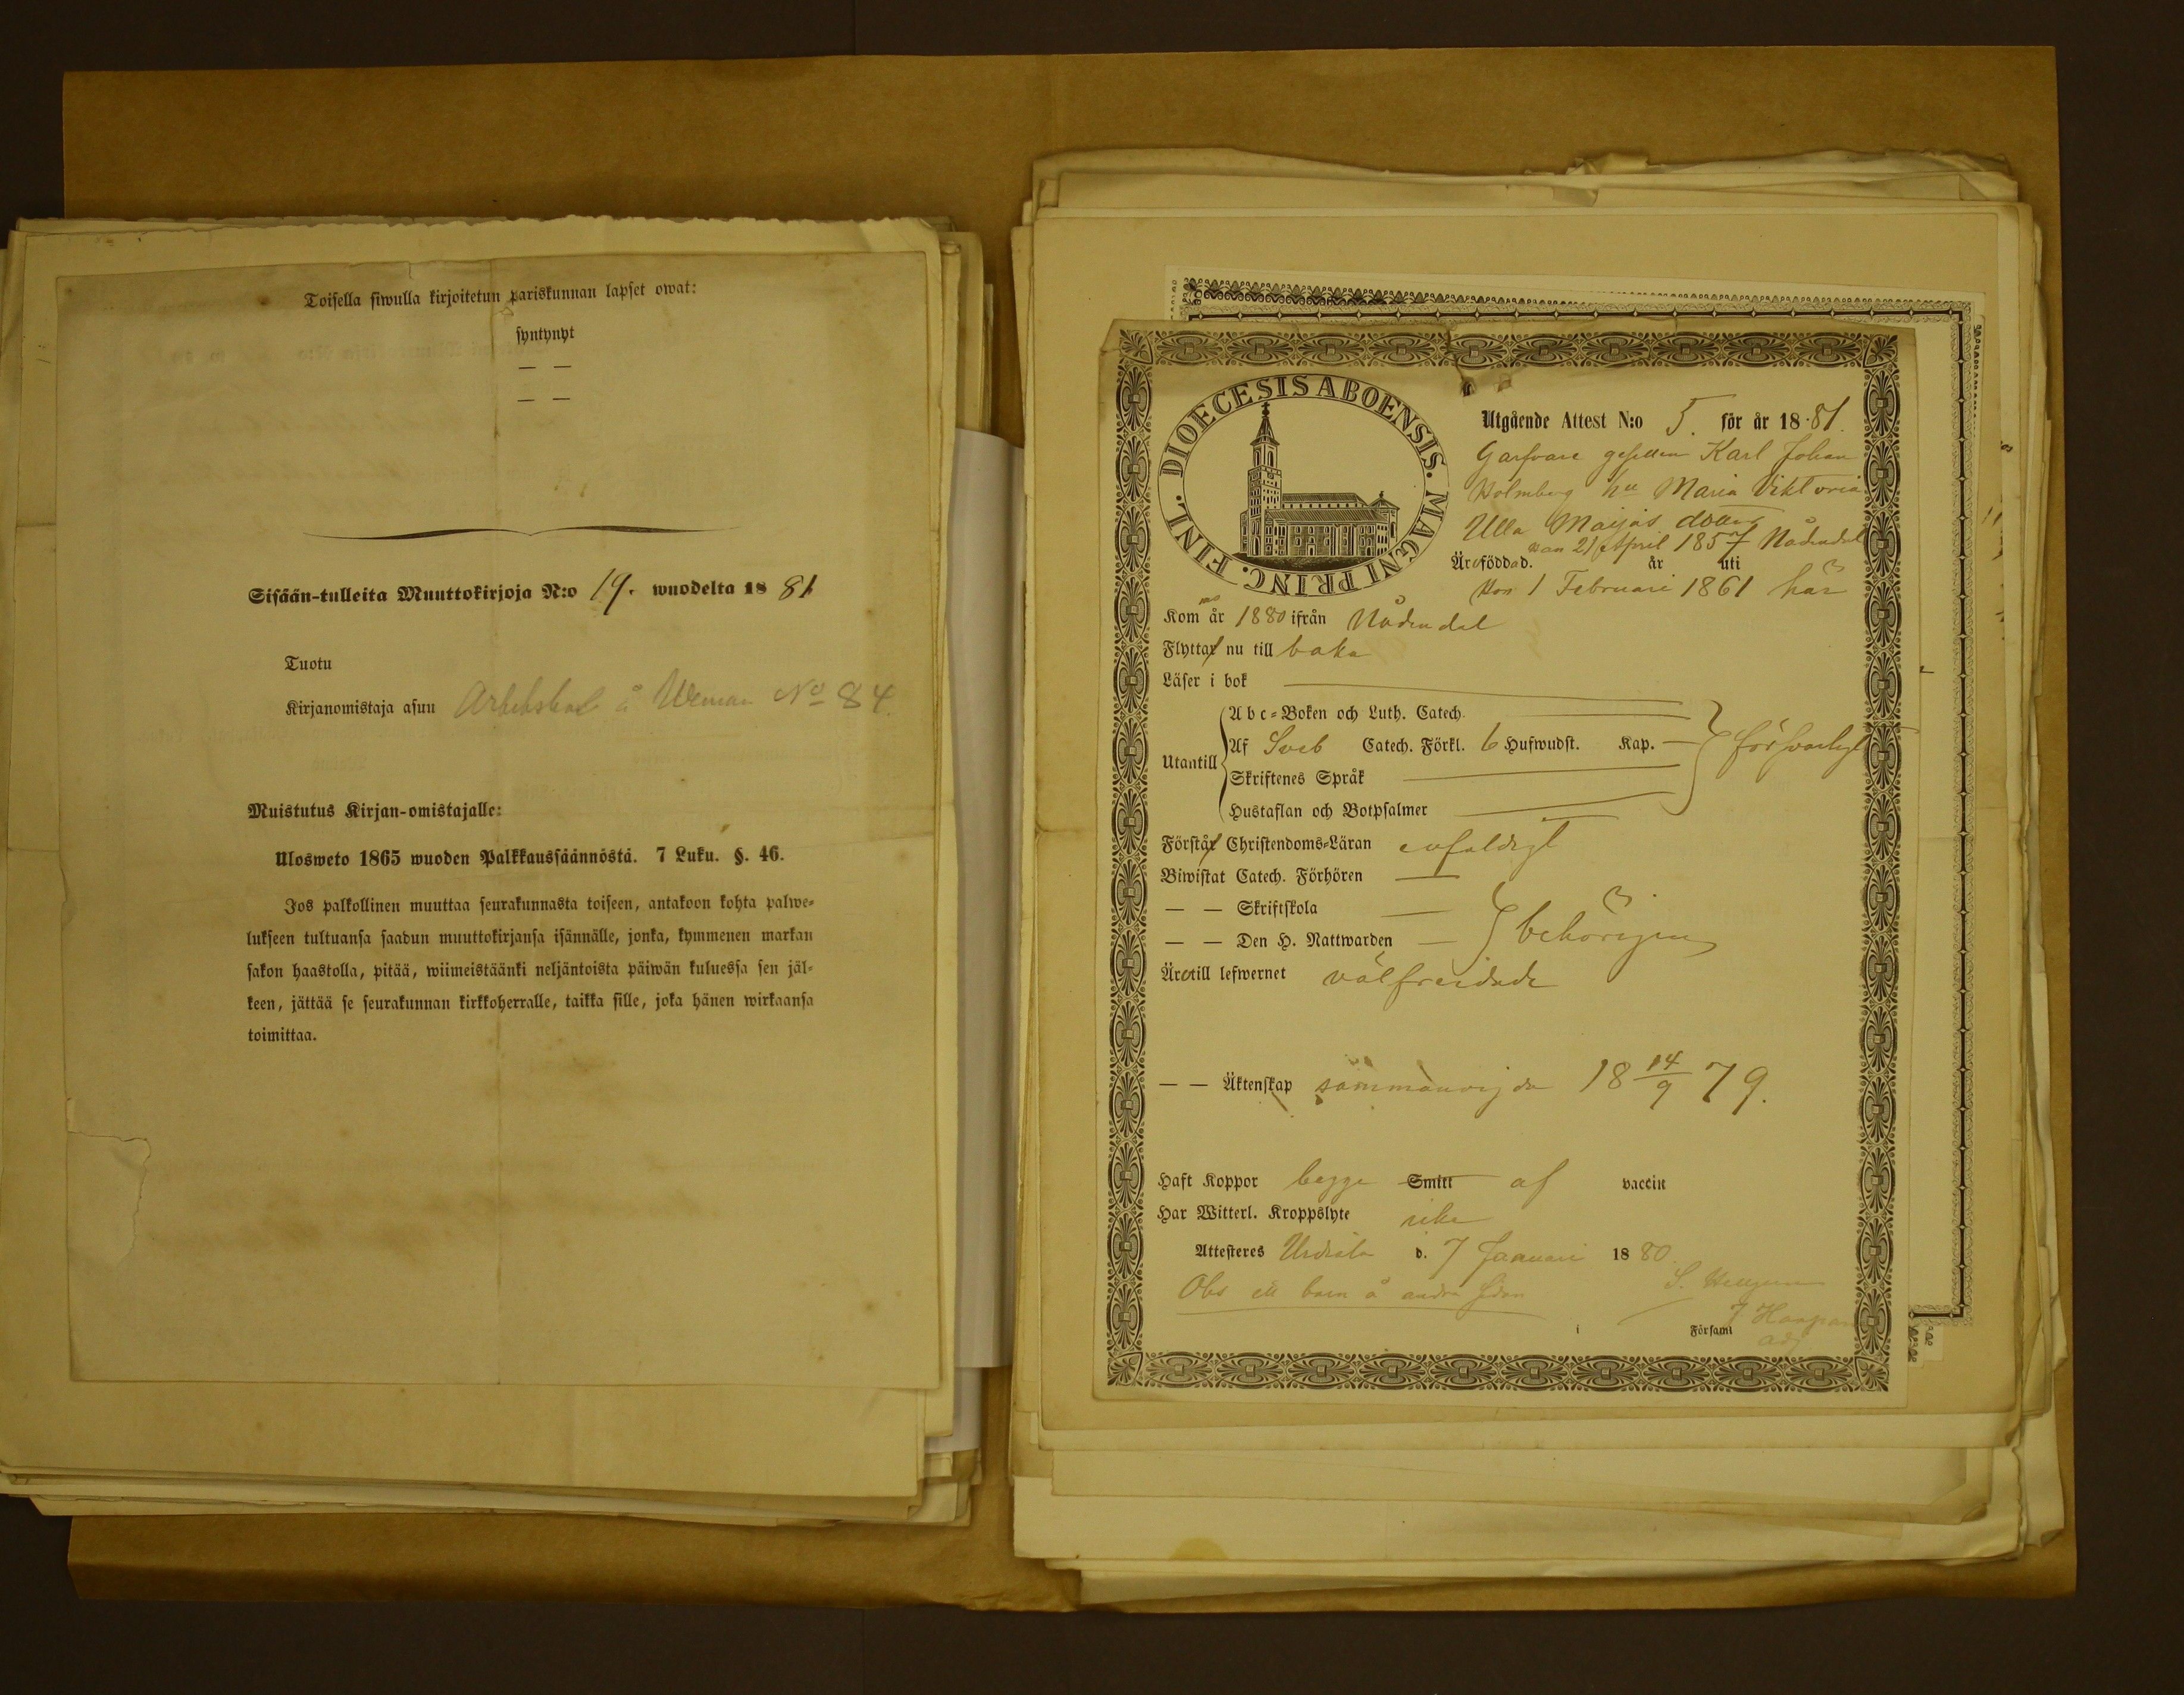 Toisella siwulla kirjoitetun pariskunnan lapset owat:
syntynyt
— —
— —
Sisään-tulleita Muuttokirjoja N:o 19. wuodelta 1881
Tuotu
Kirjanomistaja asuu å No 84.
Muistutus Kirjan-omistajalle:
Ulosweto 1865 wuoden Palkkaussäännöstä. 7 Luku. §. 46.
Jos palkollinen muuttaa seurakunnasta toiseen, antakoon kohta palwe-
lukseen tultuansa saadun muuttokirjansa isännälle, jonka, kymmenen markan
sakon haastolla, pitää, wiimeistäänki neljäntoista päiwän kuluessa sen jäl-
keen, jättää se seurakunnan kirkkoherralle, taikka sille, joka hänen wirkaansa
toimittaa.
DIOECESIS ABOENSIS. MAGNI PRINC. FINL.
Utgående Attest N:o 5. för år 1881.
Garfvare gesellen Karl Johan
Holmberg hu Maria Viktoria
Ulla Maijas dotter
Han 21 April 1857 Nådendal
Äro födda d. år uti
Hon 1 Februari 1861 här
Kommo år 1880 ifrån Nådendal
Flyttar nu till baka
Läser i bok
Utantill
Abc-Boken och Luth. Catech.
Af Sveb Catech. Förkl. 6 Hufwudst. Kap. — försvarligt
Skriftenes Språk
Hustaflan och Botpsalmer
Förstår Christendoms-Läran enfaldigt
Biwistat Catech. Förhören —
— — Skriftskola —
— — Den H. Nattwarden — behörigen
Äro till lefwernet välfrejdade
— — Äktenskap sammanvigda 18 14/9 79.
Haft Koppor begge Smitt af vaccin
Har Witterl. Kroppslyte icke
Attesteres Urdiala d. 7 Januari 1880.
Obs ett barn å andra sidan
i Församl